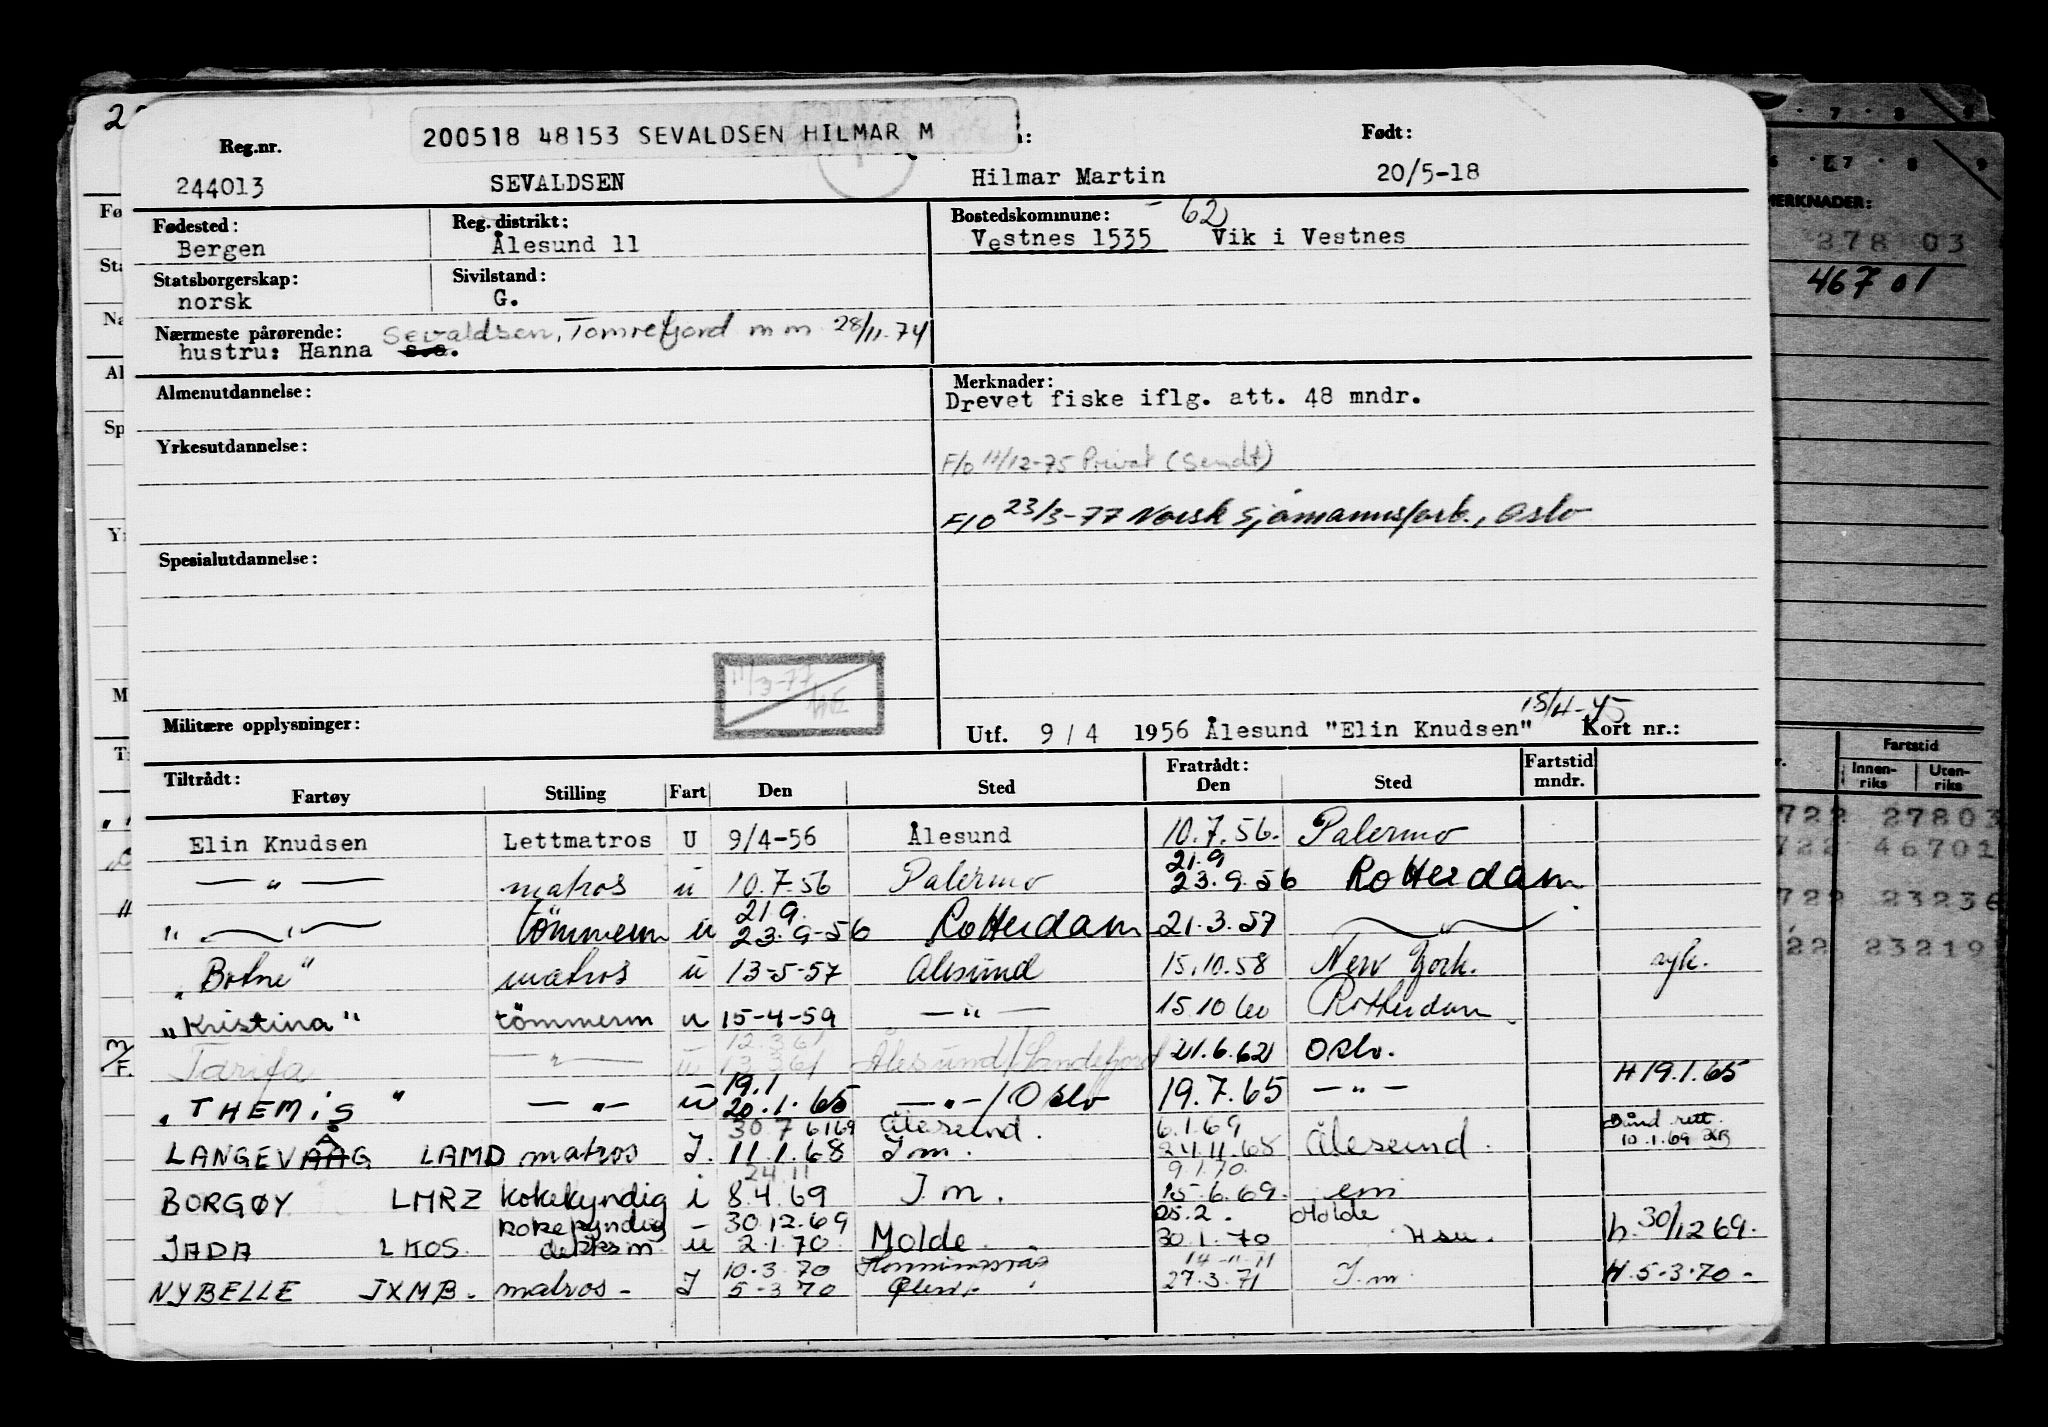 200518 48153 SEVALDSEN HILMAR M
Reg.nr. Født:
244013 SEVALDSEN Hilmar Martin 20/5-18
Fødested: Reg. distrikt: Bostedskommune: 62
Bergen Ålesund 11 Vestnes 1535 Vik i Vestnes
Statsborgerskap: Sivilstand:
norsk G.
Nærmeste pårørende: Sevaldsen, Tomrefjord m m 28/11-74
hustru: Hanna s.s.
Almenutdannelse: Merknader:
Drevet fiske iflg. att. 48 mndr.
Yrkesutdannelse:
F/o 11/12-75 Privat (Sendt)
F/O 23/3-77 Norsk Sjømannsforb., Oslo
Spesialutdannelse:
11/3-77
15/4-45
Militære opplysninger: Utf. 9/4 1956 Ålesund "Elin Knudsen" Kort nr.:
Tiltrådt: Fratrådt: Fartstid
Fartøy Stilling Fart Den Sted Den Sted mndr.
Elin Knudsen Lettmatros U 9/4-56 Ålesund 10.7.56. Palermo
21.9
— " — matros u 10.7.56 Palermo 23.9.56 Rotterdam
21.9.
" — " — tömmerm u 23.9-56 Rotterdam 21.3.57 — " —
"Botne" matros u 13-5-57 Ålesund 15.10.58 New York. syk.
"Kristina" tömmerm u 15-4-59 — " — 15.10.60 Rotterdam
12.3.61
Tarifa — " — u 13.3.61 Ålesund/Sandefjord 21.6.62 Oslo.
19.1
"THEMIS" — " — u 20.1.65 — " — / Oslo 19.7.65 — " — H 19.1.65
30.7 6169 Ålesund. 6.1.69 Bånd rett.
LANGEVÅG LAMD matros I. 11.1.68 I m. 24.11.68 Ålesund. 10.1.69
24.11 9.1.70
BORGØY LMRZ kokekyndig i 8.4.69 I m. 15.6.69. em
kokekyndig 30.12.69 25.2. Molde
JADA LKOS dekksm. u 2.1.70. Molde 30.1.70 Hsu. h. 30/12 69.
10.3.70 Honningsvåg 14-11-71
NYBELLE JXMB. matros - I 5-3 70 27.3.71 I.m. H. 5-3-70 -
MERKNADER:
278 03
467 01
Fartstid
Innen-riks Uten-riks
722 27803
722 46701
722 23236
22 23219